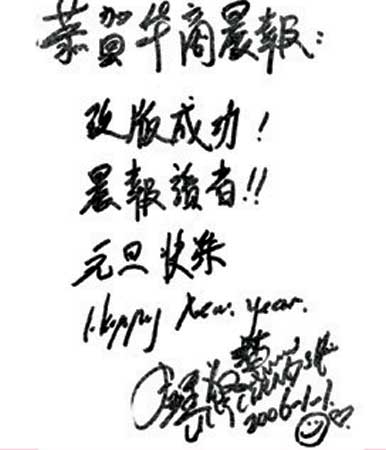 恭賀华商晨報:
改版成功!
晨報讀者!!
元旦快乐
Happy New year.
2006-1-1.